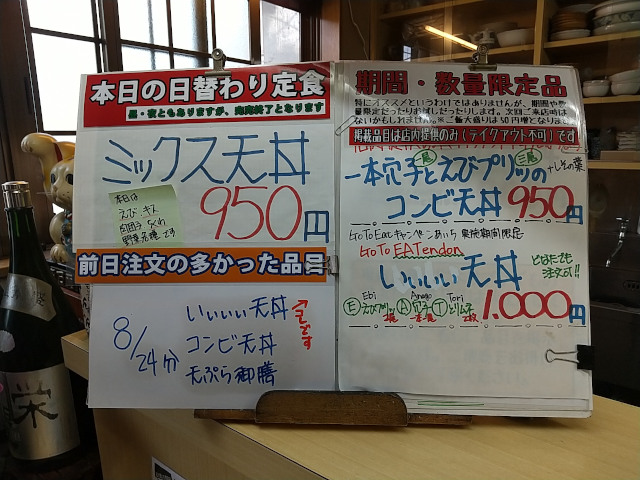 本日の日替わり定食
昼・夜ともありますが、完売終了となります
ミックス天丼
本日は
えび キス
野菜各種です
950円
前日注文の多かった品目
8/24分
いいぃい天丼
コレです
コンビ天丼
天ぷら御膳
期間・数量限定品
特にオススメというわけではありませんが、期間や数
量限定だったりお試しだったりします。次回ご来店時は
ないかもしれません。※ご飯大盛りは50円増となります。
掲載品目は店内提供のみ（テイクアウト不可）です
二尾 三尾
一本穴子とえびプリッツの +しその葉
コンビ天丼 950円
Go To Eatキャンペーンあいち 実施期間限定
Go To EATendon
いいぃい天丼
どなたでも
注文可!!
Ebi Anago Tori
Eえびプリッツ A穴子 Tとりむね
1.000円
栄